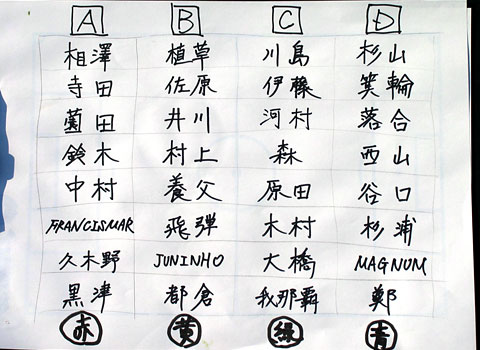 A B C D
相澤 植草 川島 杉山
寺田 佐原 伊藤 箕輪
薗田 井川 河村 落合
鈴木 村上 森 西山
中村 養父 原田 谷口
FRANCISMAR 飛弾 木村 杉浦
久木野 JUNINHO 大橋 MAGNUM
黒津 都倉 我那覇 鄭
赤 黄 緑 青